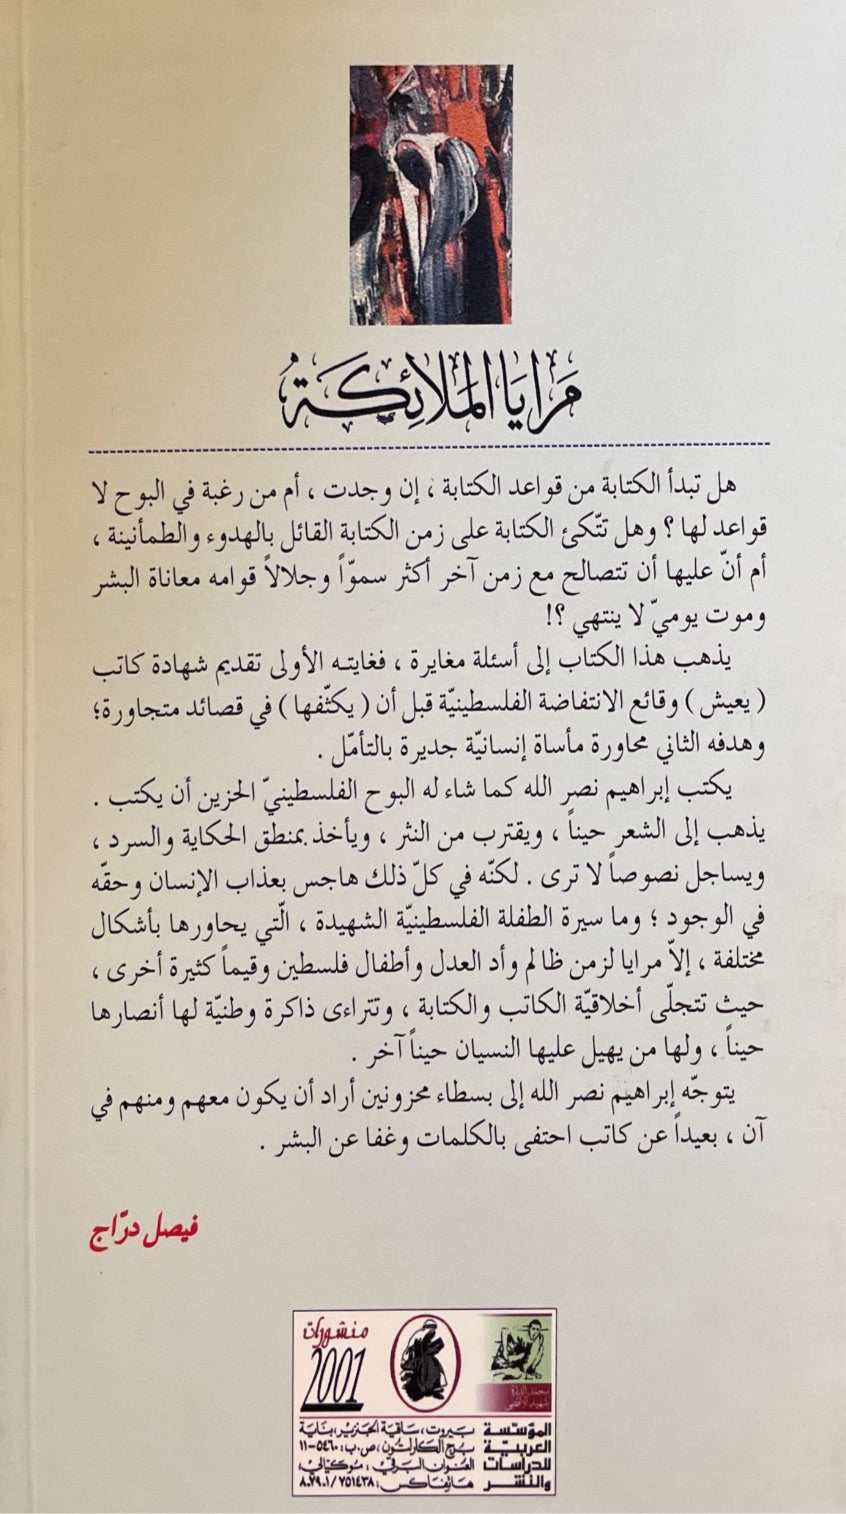 مَرايَا المَلائِكَة
هل تبدأ الكتابة من قواعد الكتابة ، إن وجدت ، أم من رغبة في البوح لا
قواعد لها ؟ وهل تتّكئ الكتابة على زمن الكتابة القائل بالهدوء والطمأنينة ،
أم أنّ عليها أن تتصالح مع زمن آخر أكثر سموّاً وجلالاً قوامه معاناة البشر
وموت يوميّ لا ينتهي ؟!
يذهب هذا الكتاب إلى أسئلة مغايرة ، فغايته الأولى تقديم شهادة كاتب
( يعيش ) وقائع الانتفاضة الفلسطينيّة قبل أن ( يكثّفها ) في قصائد متجاورة؛
وهدفه الثاني محاورة مأساة إنسانيّة جديرة بالتأمّل .
يكتب إبراهيم نصر الله كما شاء له البوح الفلسطينيّ الحزين أن يكتب .
يذهب إلى الشعر حيناً ، ويقترب من النثر ، ويأخذ بمنطق الحكاية والسرد ،
ويساجل نصوصاً لا ترى . لكنّه في كلّ ذلك هاجس بعذاب الإنسان وحقّه
في الوجود ؛ وما سيرة الطفلة الفلسطينيّة الشهيدة ، الّتي يحاورها بأشكال
مختلفة ، إلاّ مرايا لزمن ظالم وأد العدل وأطفال فلسطين وقيماً كثيرة أخرى ،
حيث تتجلّى أخلاقيّة الكاتب والكتابة ، وتتراءى ذاكرة وطنيّة لها أنصارها
حيناً ، ولها من يهيل عليها النسيان حيناً آخر .
يتوجّه إبراهيم نصر الله إلى بسطاء محزونين أراد أن يكون معهم ومنهم في
آن ، بعيداً عن كاتب احتفى بالكلمات وغفا عن البشر .
فيصل درّاج
منشورات
2001
محمد الدرة
شهيد الأقصى
المؤسّسة بيروت، ساقية الجنزير، بناية
العربيّة برج الكارلتون، ص.ب: ٥٤٦٠-١١
للدراسات العنوان البرقي: موكيّالي،
والنشر هاتفاكس: ٨٠٧٩٠١/٧٥١٤٣٨